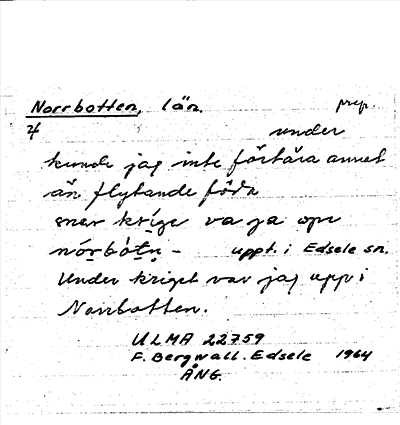 Norrbotten, län. prep.
4 under
kunde jag inte förtära annat
än flytande föda
krige va ja opе
nórbótn - uppt. i Edsele sn.
Under kriget var jag upp i
Norrbotten.
ULMA 22759
F. Bergwall. Edsele 1964
ÅNG.